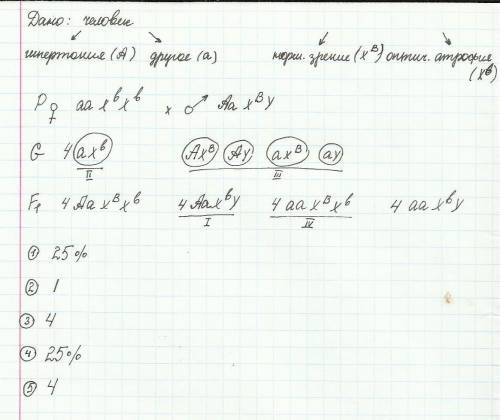 Дано: человек
гипертония (A) другое (a) норм. зрение (x^B) оптич. атрофия (x^b)
P ♀ aa x^b x^b x ♂ Aa x^B y
G 4 ax^b Ax^B Ay ax^B ay
II III
F1 4 Aa x^B x^b 4 Aa x^b y 4 aa x^B x^b 4 aa x^b y
I IV
① 25%
② 1
③ 4
④ 25%
⑤ 4